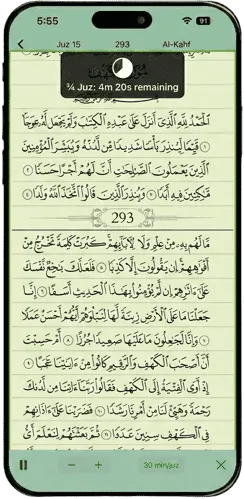 5:55
91
Juz 15 293 Al-Kahf
¾ Juz: 4m 20s remaining
ٱلۡحَمۡدُ لِلَّهِ ٱلَّذِيٓ أَنزَلَ عَلَىٰ عَبۡدِهِ ٱلۡكِتَٰبَ وَلَمۡ يَجۡعَل لَّهُۥ عِوَجَاۜ
١ قَيِّمٗا لِّيُنذِرَ بَأۡسٗا شَدِيدٗا مِّن لَّدُنۡهُ وَيُبَشِّرَ ٱلۡمُؤۡمِنِينَ
ٱلَّذِينَ يَعۡمَلُونَ ٱلصَّٰلِحَٰتِ أَنَّ لَهُمۡ أَجۡرًا حَسَنٗا ٢
مَّٰكِثِينَ فِيهِ أَبَدٗا ٣ وَيُنذِرَ ٱلَّذِينَ قَالُواْ ٱتَّخَذَ ٱللَّهُ وَلَدٗا ٤
293
مَّا لَهُم بِهِۦ مِنۡ عِلۡمٖ وَلَا لِأٓبَآئِهِمۡۚ كَبُرَتۡ كَلِمَةٗ تَخۡرُجُ مِنۡ
أَفۡوَٰهِهِمۡۚ إِن يَقُولُونَ إِلَّا كَذِبٗا ٥ فَلَعَلَّكَ بَٰخِعٞ نَّفۡسَكَ
عَلَىٰٓ ءَاثَٰرِهِمۡ إِن لَّمۡ يُؤۡمِنُواْ بِهَٰذَا ٱلۡحَدِيثِ أَسَفًا ٦ إِنَّا
جَعَلۡنَا مَا عَلَى ٱلۡأَرۡضِ زِينَةٗ لَّهَا لِنَبۡلُوَهُمۡ أَيُّهُمۡ أَحۡسَنُ عَمَلٗا
٧ وَإِنَّا لَجَٰعِلُونَ مَا عَلَيۡهَا صَعِيدٗا جُرُزًا ٨ أَمۡ حَسِبۡتَ
أَنَّ أَصۡحَٰبَ ٱلۡكَهۡفِ وَٱلرَّقِيمِ كَانُواْ مِنۡ ءَايَٰتِنَا عَجَبًا ٩
إِذۡ أَوَى ٱلۡفِتۡيَةُ إِلَى ٱلۡكَهۡفِ فَقَالُواْ رَبَّنَآ ءَاتِنَا مِن لَّدُنكَ
رَحۡمَةٗ وَهَيِّئۡ لَنَا مِنۡ أَمۡرِنَا رَشَدٗا ١٠ فَضَرَبۡنَا عَلَىٰٓ ءَاذَانِهِمۡ
فِي ٱلۡكَهۡفِ سِنِينَ عَدَدٗا ١١ ثُمَّ بَعَثۡنَٰهُمۡ لِنَعۡلَمَ أَيُّ
30 min/juz